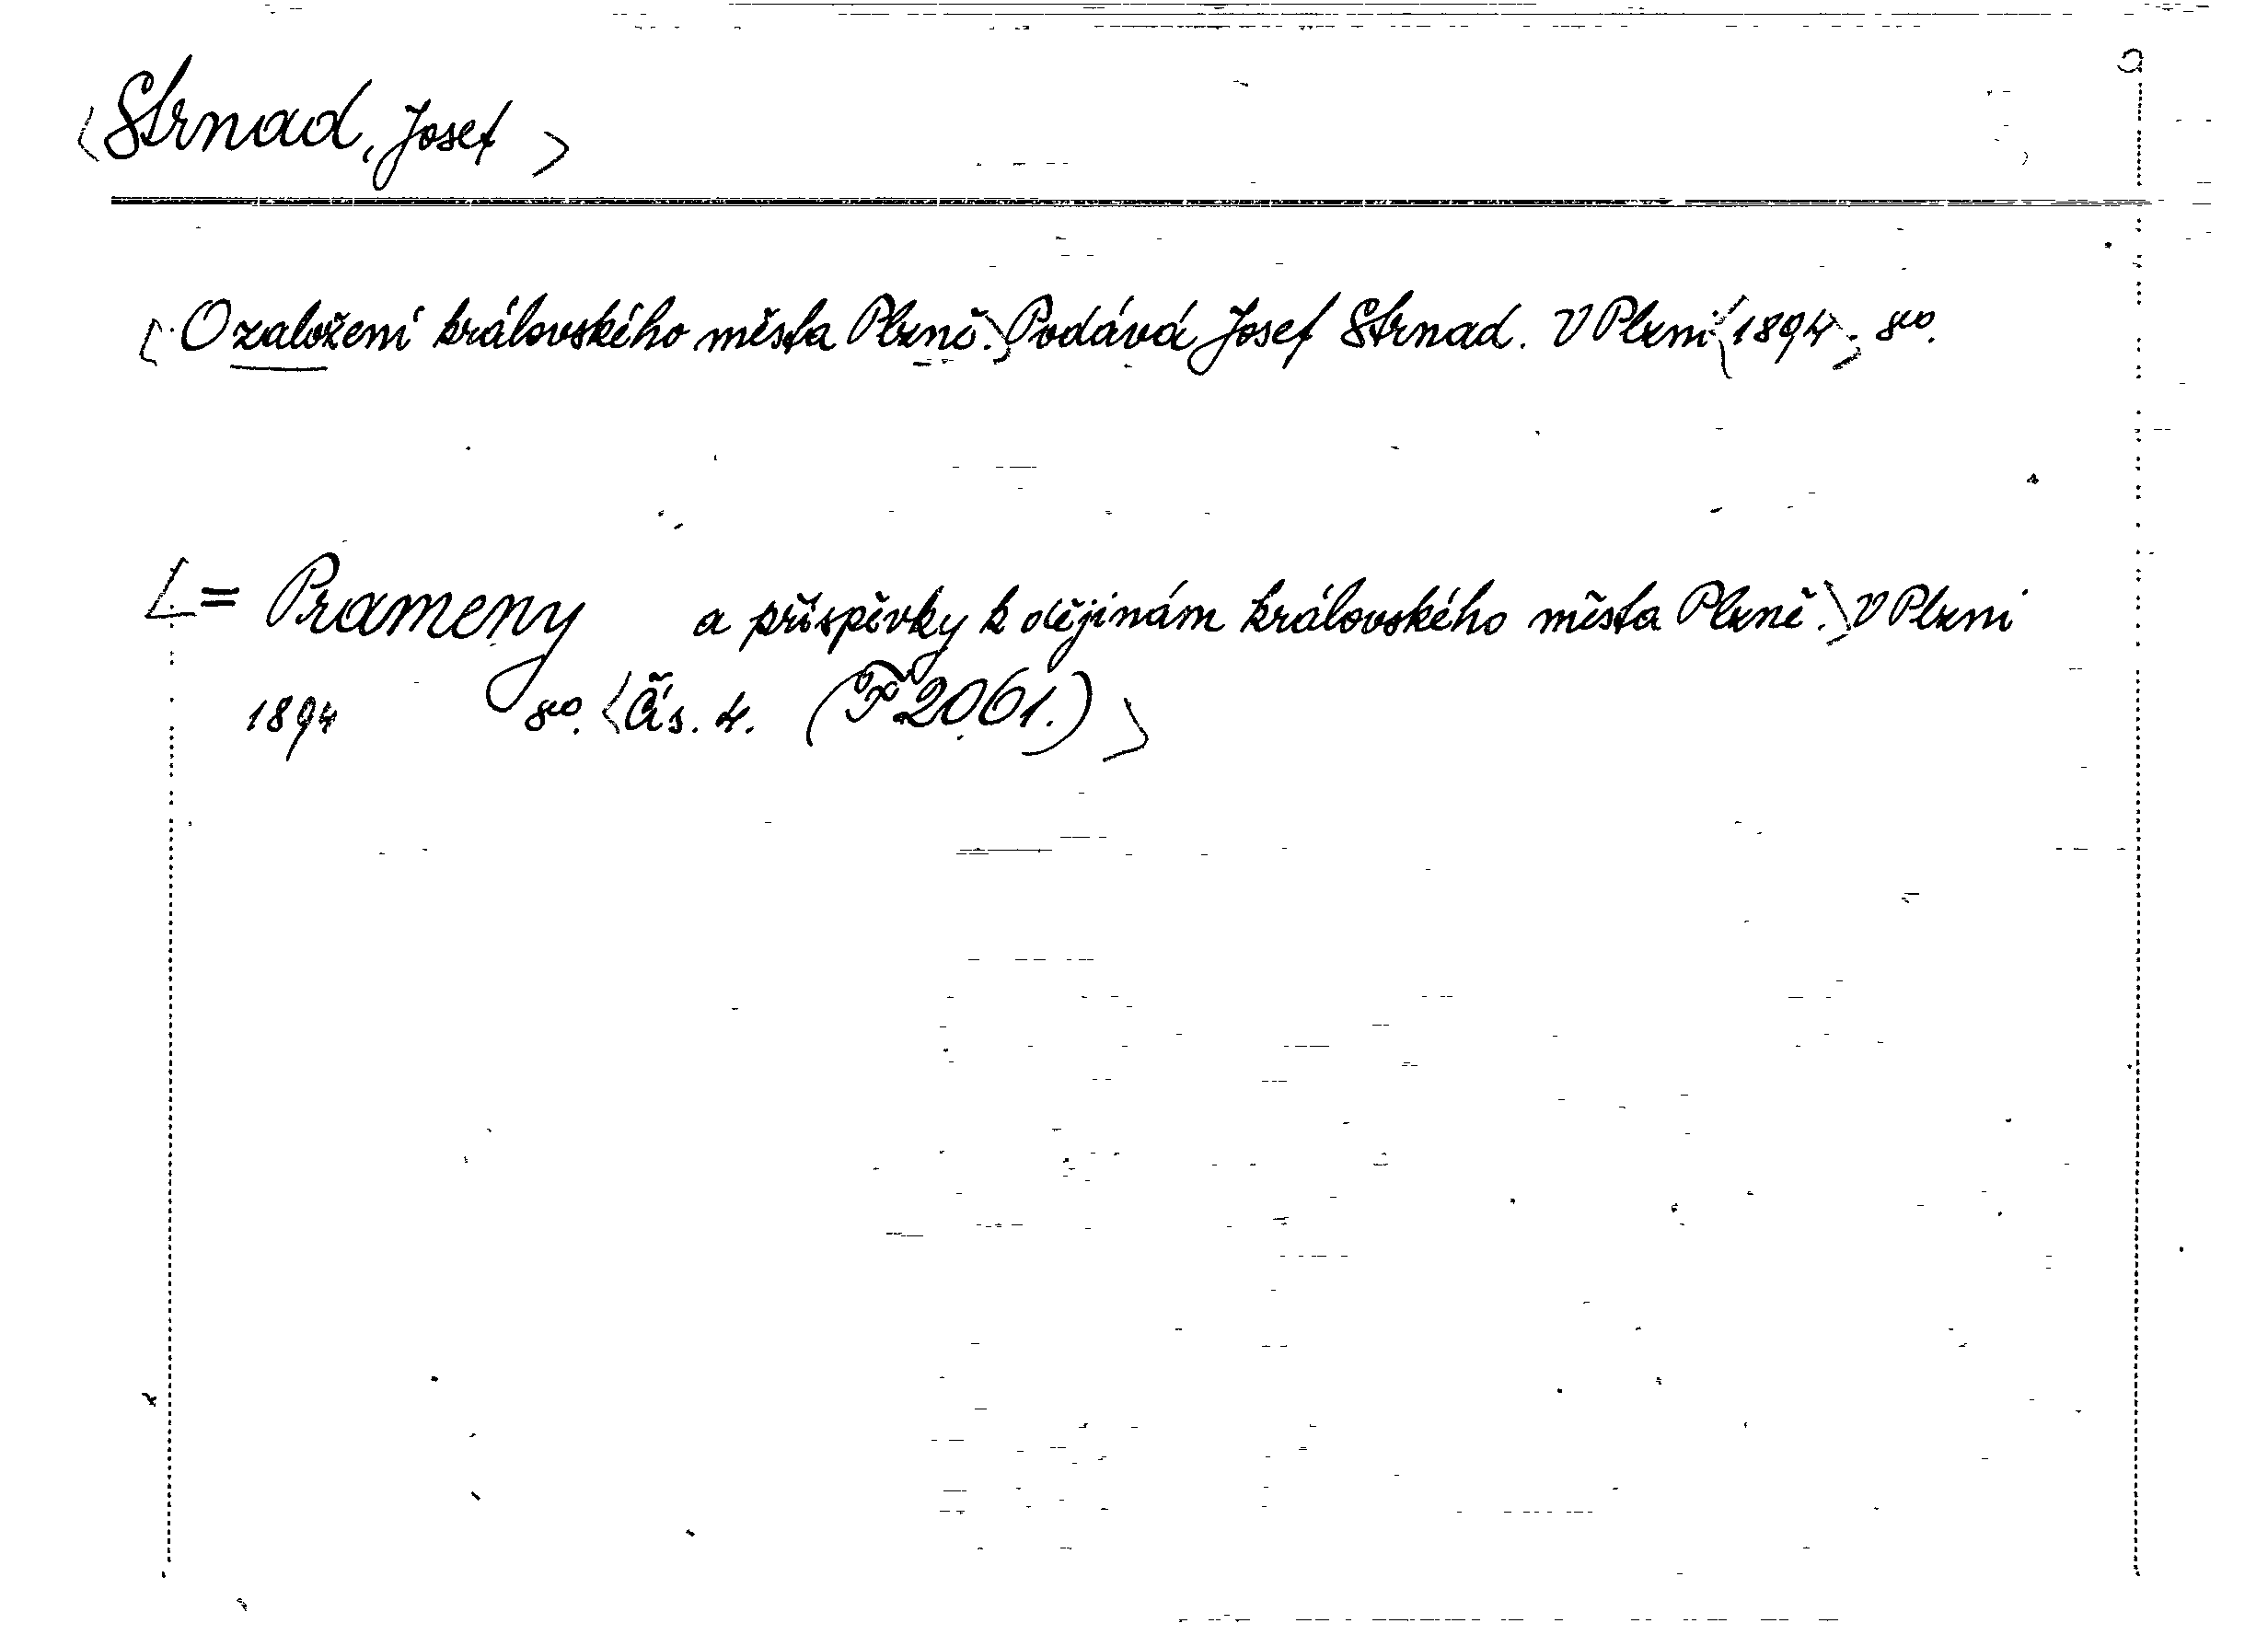 ⟨Strnad, Josef⟩
[O založení královského města Plzně.⟩ Podává Josef Strnad. V Plzni ⟨1894⟩ 8vo.
[= Prameny a příspěvky k dějinám královského města Plzně.⟩ V Plzni
1894 8vo. ⟨Čís. 4. (F 2061.)⟩